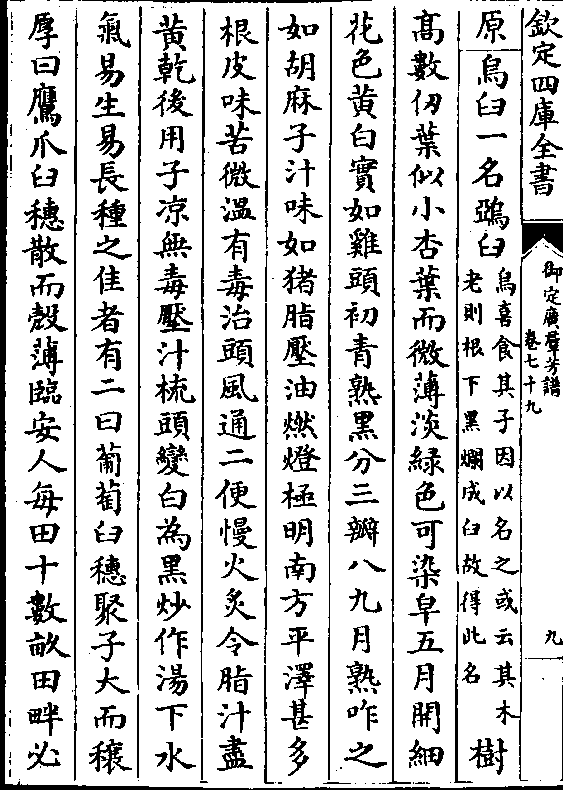 欽定四庫全書
御定廣羣芳譜
卷七十九
九
原烏臼一名鵶臼
烏喜食其子因以名之或云其木
老則根下黑爛成臼故得此名
樹
高數仞葉似小杏葉而微薄淡綠色可染皁五月開細
花色黃白實如雞頭初青熟黑分三瓣八九月熟咋之
如胡麻子汁味如猪脂壓油燃燈極明南方平澤甚多
根皮味苦微溫有毒治頭風通二便慢火炙令脂汁盡
黃乾後用子凉無毒壓汁梳頭變白為黑炒作湯下水
氣易生易長種之佳者有二曰葡萄臼穗聚子大而穰
厚曰鷹爪臼穗散而殼薄臨安人每田十數畝田畔必